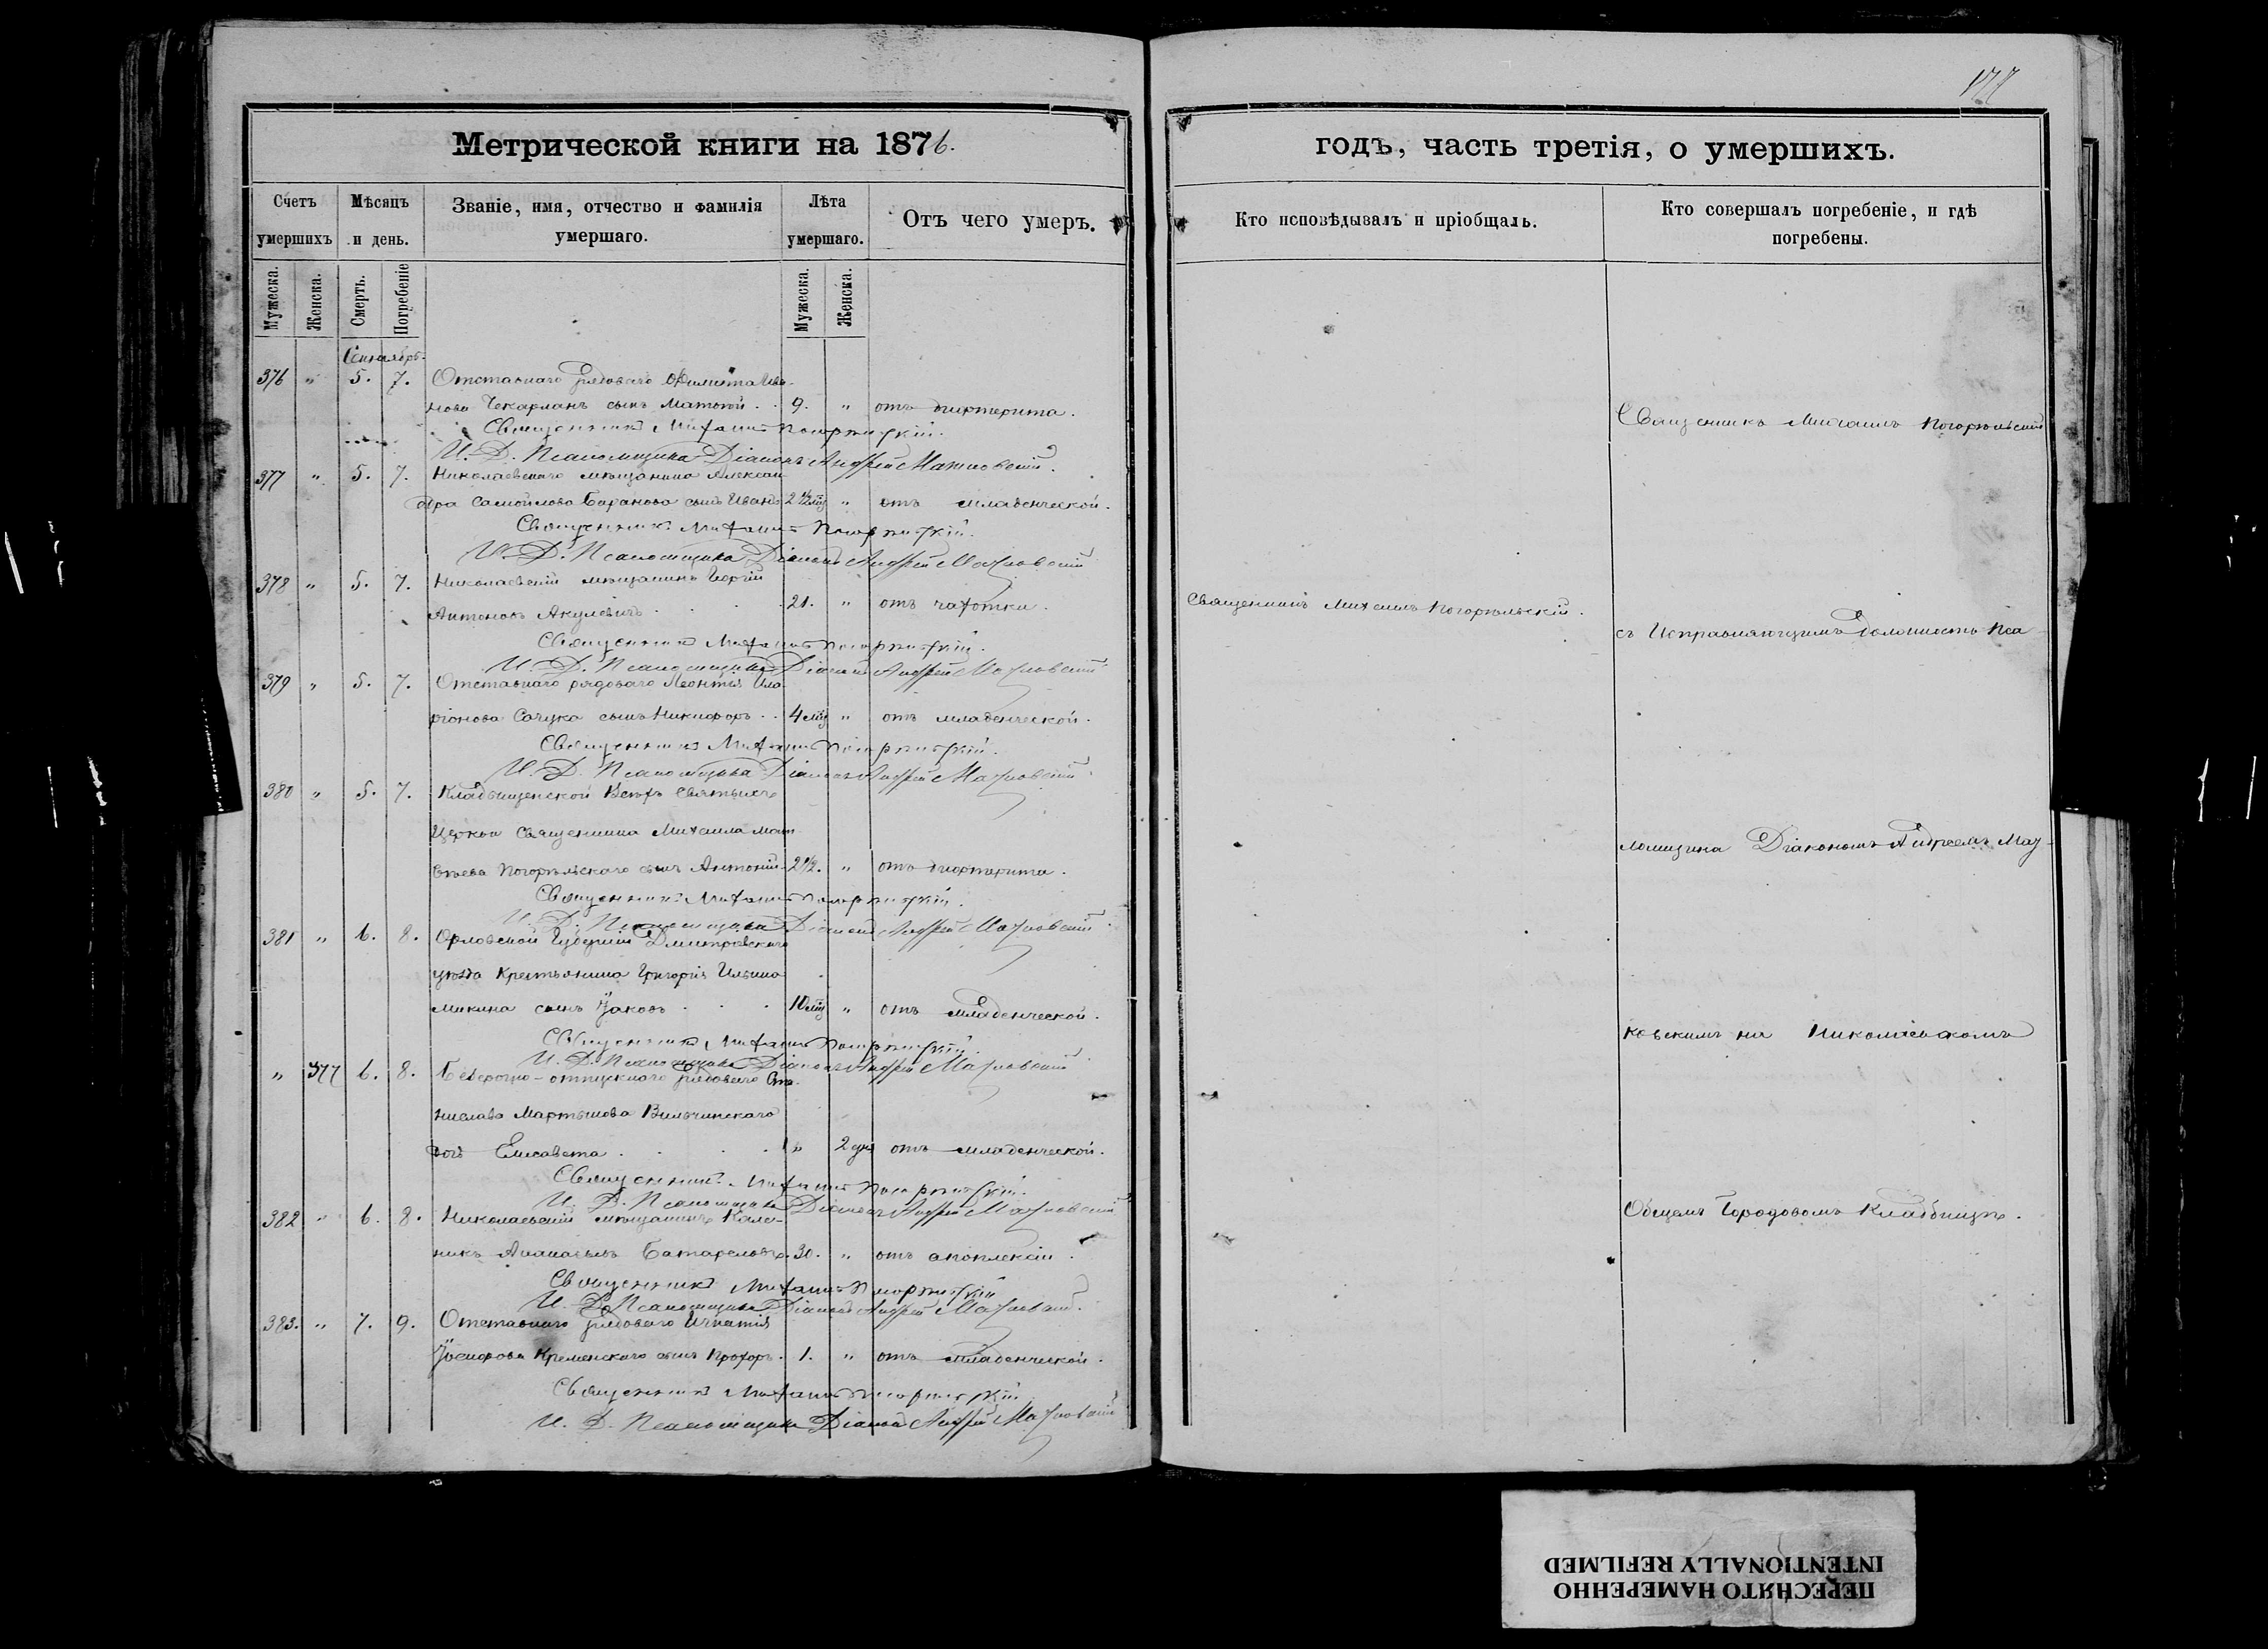 177
Метрической книги на 1876.
годъ, часть третія, о умершихъ.
Счетъ умершихъ
Мѣсяцъ и день.
Званіе, имя, отчество и фамилія умершаго.
Лѣта умершаго.
Отъ чего умеръ.
Кто исповѣдывалъ и пріобщалъ.
Кто совершалъ погребеніе, и гдѣ погребены.
Мужеска.
Женска.
Смерть.
Погребеніе
Мужеска.
Женска.
Сентябрь
376 " 5. 7. Отставнаго рядоваго Ива-
нова Чекарманъ сынъ Матѳей . . 9. " отъ дифтерита.
Священникъ Михаилъ Погорѣльскій.
И. Д. Псаломщика Діаконъ Андрей Мацковскій.
377 " 5. 7. Николаевскаго мѣщанина Алексан
дра Самойлова Баранова сынъ Иванъ 2 1/2 мѣс " отъ младенческой.
Священникъ Михаилъ Погорѣльскій.
И. Д. Псаломщика Діаконъ Андрей Мацковскій
378 " 5. 7. Николаевскій мѣщанинъ Георгій
Антоновъ Акулевичъ . . . . 21. " отъ чахотки.
Священникъ Михаилъ Погорѣльскій.
И. Д. Псаломщика Діаконъ Андрей Мацковскій
379 " 5. 7. Отставнаго рядоваго Леонтія Ила-
ріонова Сачука сынъ Никифоръ . . 4 мѣс " отъ младенческой.
Священникъ Михаилъ Погорѣльскій.
И. Д. Псаломщика Діаконъ Андрей Мацковскій
380 " 5. 7. Кладбищенской Всѣхъ Святыхъ
Церкви Священника Михаила Мат
вѣева Погорѣльскаго сынъ Антоній 2 1/2. " отъ дифтерита.
Священникъ Михаилъ Погорѣльскій.
И. Д. Псаломщика Діаконъ Андрей Мацковскій
381 " 6. 8. Орловской Губерніи Дмитровскаго
уѣзда Крестьянина Григорія Ильина
Микина сынъ Іаковъ . . . 10 мѣс " отъ младенческой.
Священникъ Михаилъ Погорѣльскій
И. Д. Псаломщика Діаконъ Андрей Мацковскій
" 377 6. 8. Безсрочно-отпускнаго рядоваго Ста-
нислава Мартынова Вильчинскаго
дочь Елисавета . . . . " 2 дня отъ младенческой.
Священникъ Михаилъ Погорѣльскій.
И. Д. Псаломщика Діаконъ Андрей Мацковскій
382 " 6. 8. Николаевскій мѣщанинъ Кало-
никъ 30. " отъ апоплексіи.
Священникъ Михаилъ Погорѣльскій
И. Д. Псаломщика Діаконъ Андрей Мацковскій.
383. " 7. 9. Отставнаго рядоваго Игнатія
Іосифова Кременскаго сынъ Прохоръ. 1. " отъ младенческой.
Священникъ Михаилъ Погорѣльскій
И. Д. Псаломщика Діаконъ Андрей Мацковскій
Священникъ Михаилъ Погорѣльскій.
Священникъ Михаилъ Погорѣльскій
съ Исправляющимъ должность Пса
ломщика Діакономъ Андреемъ Мац-
ковскимъ на Николаевскомъ
Общемъ Городовомъ Кладбищѣ.
ПЕРЕСНЯТО НАМЕРЕННО
INTENTIONALLY REFILMED